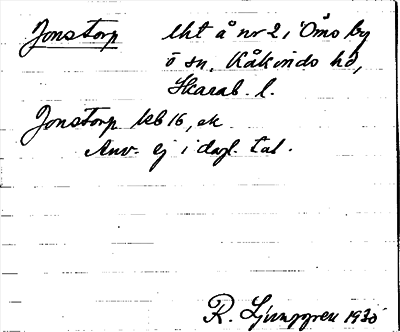 Jonstorp lht å nr 2 i Öms by
ö sn, Kåkinds hd,
Skarab. l.
Jonstorp kb 16, ek
Anv. ej i dagl. tal.
R. Ljunggren 1935